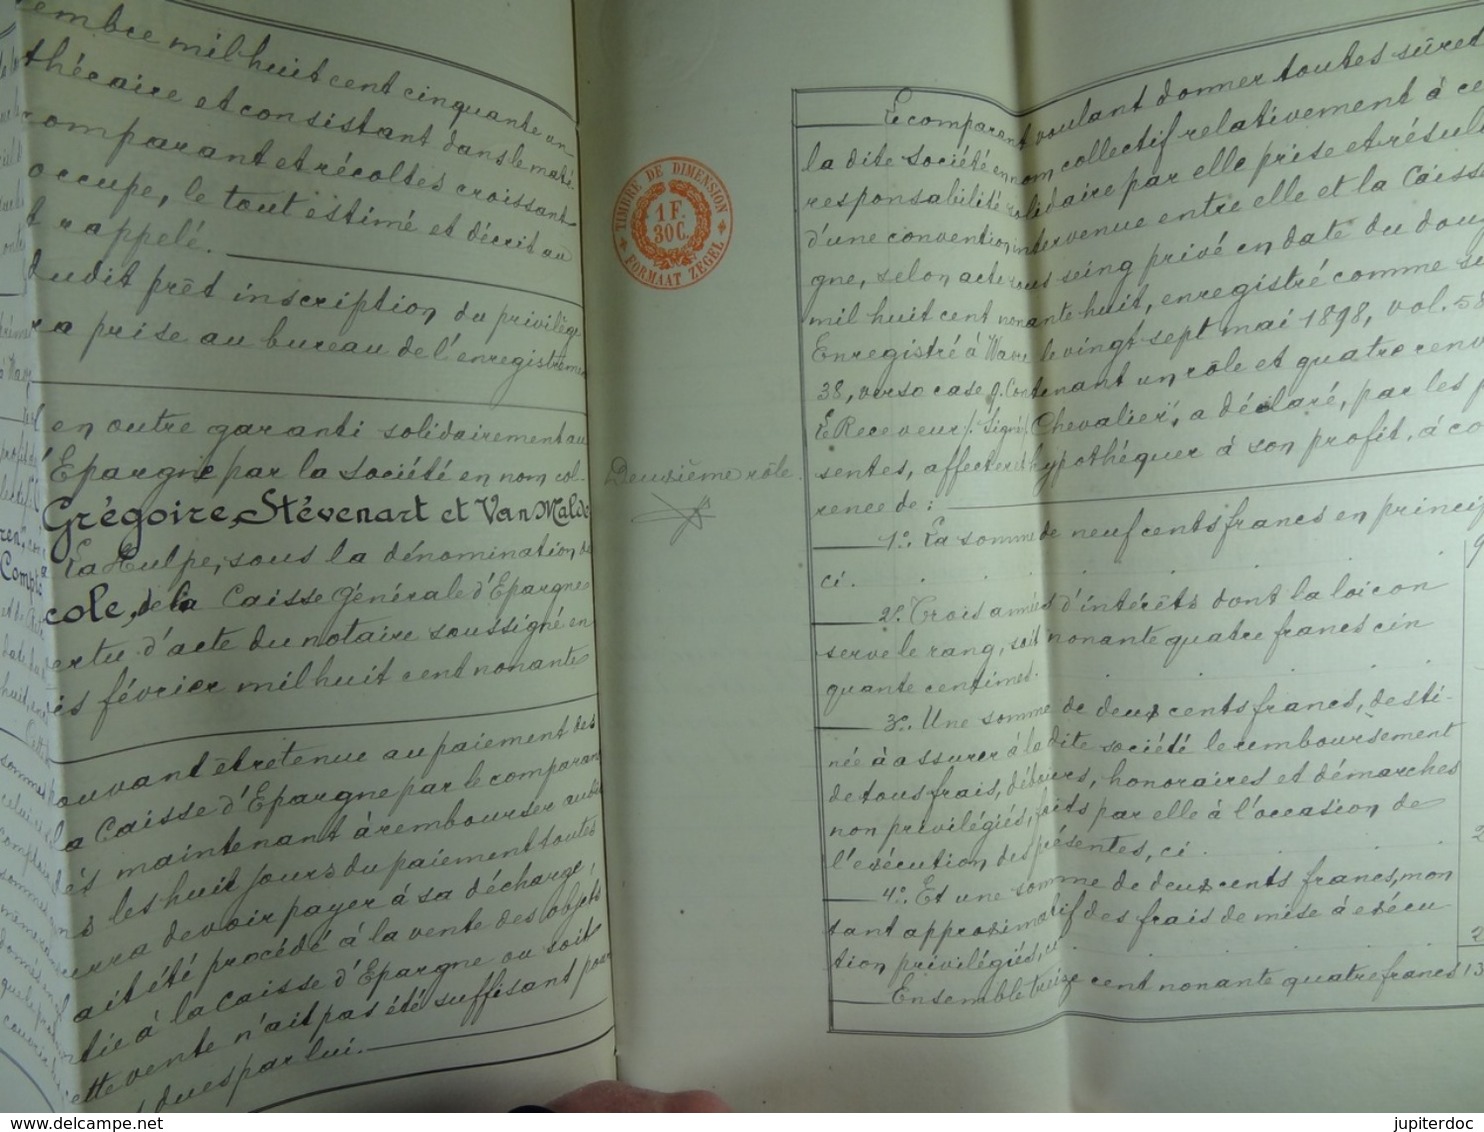 embre mil huit cent cinquante un
thécaire et consistant dans le maté-
comparant et récoltes croissant
occupe, le tout estimé et décrit au
t rappelé.
dudit prêt inscription du privilège
ra prise au bureau de l'enregistremen
en outre garanti solidairement au
'Epargne par la société en nom col-
Grégoire, Stévenart et Van Malde
La Hulpe, sous la dénomination de
cole, de la Caisse Générale d'Epargne
ertu d'acte du notaire soussigné en
is février mil huit cent nonante
ouvant être tenue au paiement des
la Caisse d'Epargne par le comparant
dès maintenant à rembourser au dit
s les huit jours du paiement toutes
urra devoir payer à sa décharge,
ait été procédé à la vente des objets
tie à la Caisse d'Epargne ou soit
ette vente n'ait pas été suffisant pour
dues par lui.
TIMBRE DE DIMENSION
1 F.
30 C.
FORMAAT ZEGEL
Deuxième rôle
Le comparent voulant donner toutes sûret
la dite société en nom collectif relativement à ce
responsabilité solidaire par elle prise et résul
d'une convention intervenue entre elle et la Caisse
gne, selon acte sous seing privé en date du dou
mil huit cent nonante huit, enregistré comme su
Enregistré à Wavre le vingt sept mai 1898, vol. 58
38, verso case 9. Contenant un rôle et quatre renv
Le Receveur /: Signé/ Chevalier", a déclaré, par les p
sentes, affecter et hypothéquer à son profit, à co
rence de :
1°. La somme de neuf cents francs en princip
ci. 9
2°. Trois années d'intérêts dont la loi con
serve le rang, soit nonante quatre francs cin
quante centimes.
3°. Une somme de deux cents francs, desti-
née à assurer à la dite société le remboursement
de tous frais, débours, honoraires et démarches
non privilégiés, faits par elle à l'occasion de
l'exécution des présentes, ci 2
4°. Et une somme de deux cents francs, mon
tant approximatif des frais de mise à exécu
tion privilégiés, ci 2
Ensemble treize cent nonante quatre francs 13
www.delcampe.net
jupiterdoc